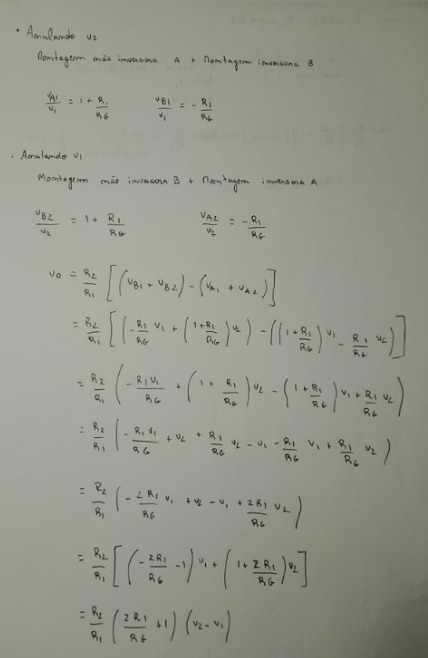 • Anulando v2
Montagem não inversora A + Montagem inversora B
vA1/v1 = 1 + R1/RG    vB1/v1 = - R1/RG
• Anulando v1
Montagem não inversora B + Montagem inversora A
vB2/v2 = 1 + R1/RG    vA2/v2 = - R1/RG
vo = R2/R1 [(vB1 + vB2) - (vA1 + vA2)]
= R2/R1 [(-R1/RG v1 + (1 + R1/RG) v2) - ((1 + R1/RG) v1 - R1/RG v2)]
= R2/R1 (-R1v1/RG + (1 + R1/RG) v2 - (1 + R1/RG) v1 + R1/RG v2)
= R2/R1 (-R1v1/RG + v2 + R1/RG v2 - v1 - R1/RG v1 + R1/RG v2)
= R2/R1 (-2R1/RG v1 + v2 - v1 + 2R1/RG v2)
= R2/R1 [(-2R1/RG - 1) v1 + (1 + 2R1/RG) v2]
= R2/R1 (2R1/RG + 1) (v2 - v1)